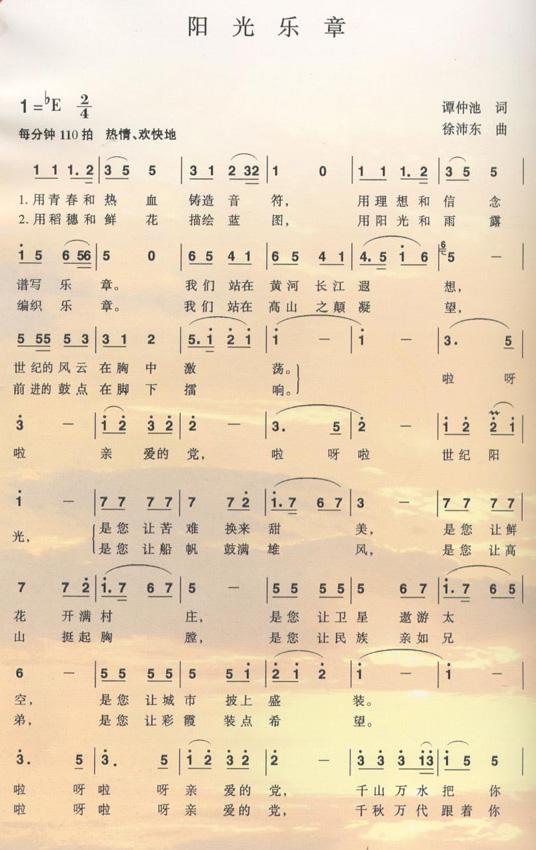 阳光乐章
1=♭E 2/4
谭仲池 词
每分钟110拍 热情、欢快地
徐沛东 曲
1 1 1. 2 | 3 5 5 | 3 1 2 32 | 1 0 | 1 1 1. 2 | 3 5 5 |
1.用青春和热血铸造音符，用理想和信念
2.用稻穗和鲜花描绘蓝图，用阳光和雨露
i 5 6 56 | 5 0 | 6 5 4 1 | 6 5 4 1 | 4. 5 i 6 | 5 - |
谱写乐章。我们站在黄河长江遐想，
编织乐章。我们站在高山之颠凝望，
5 55 5 3 | 3 1 2 | 5. i 2 i | i - | i - | 3. 5 |
世纪的风云在胸中激荡。啦呀
前进的鼓点在脚下擂响。
3 - | i 2 3 2 | 2 - | 3. 5 | 2 - | i 2 2 i |
啦亲爱的党，啦呀啦世纪阳
i - | 7 7 7 7 | 7 7 2 | i. 7 6 7 | 3 - | 7 7 7 7 |
光，是您让苦难换来甜美，是您让鲜
是您让船帆鼓满雄风，是您让高
7 7 2 | i. 7 6 7 | 5 - | 5 5 5 5 | 5 6 7 | i. 7 6 5 |
花开满村庄，是您让卫星遨游太
山挺起胸膛，是您让民族亲如兄
6 - | 5 5 5 5 | 5 5 i | 2 i 2 | i - | i - |
空，是您让城市披上盛装。
弟，是您让彩霞装点希望。
3. 5 | 3. 5 | i 2 3 2 | 2 - | 3 3 3 i3 | i 5 5 |
啦呀啦呀亲爱的党，千山万水把你
啦呀啦呀亲爱的党，千秋万代跟着你